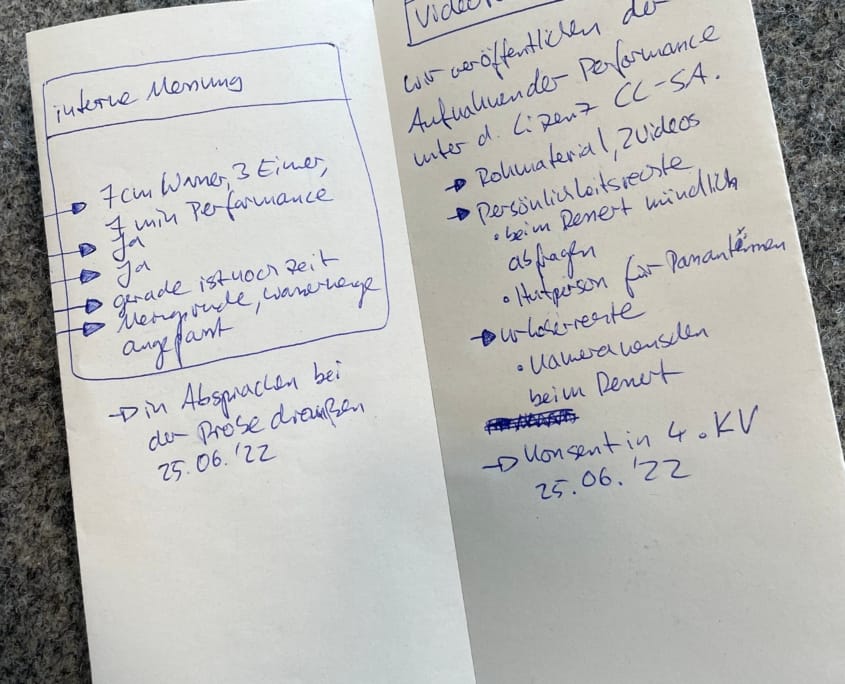 interne Messung
7 cm Wasser, 3 Eimer,
7 min Performance
Ja
Ja
gerade ist noch Zeit
Mengrude, Wassermenge
angepasst
→ in Absprachen bei
der Probe draußen
25.06.'22
Video
wir veröffentlichen der
Aufnahmen der Performance
unter d. Lizenz CC-SA.
→ Rohmaterial, 2 Videos
→ Persönlichkeitsrechte
• beim Dessert mündlich
abfragen
• Hutperson für
→ Urheberrechte
• Kameramenschen
beim Dessert
→ Konsent in 4. KV
25.06.'22